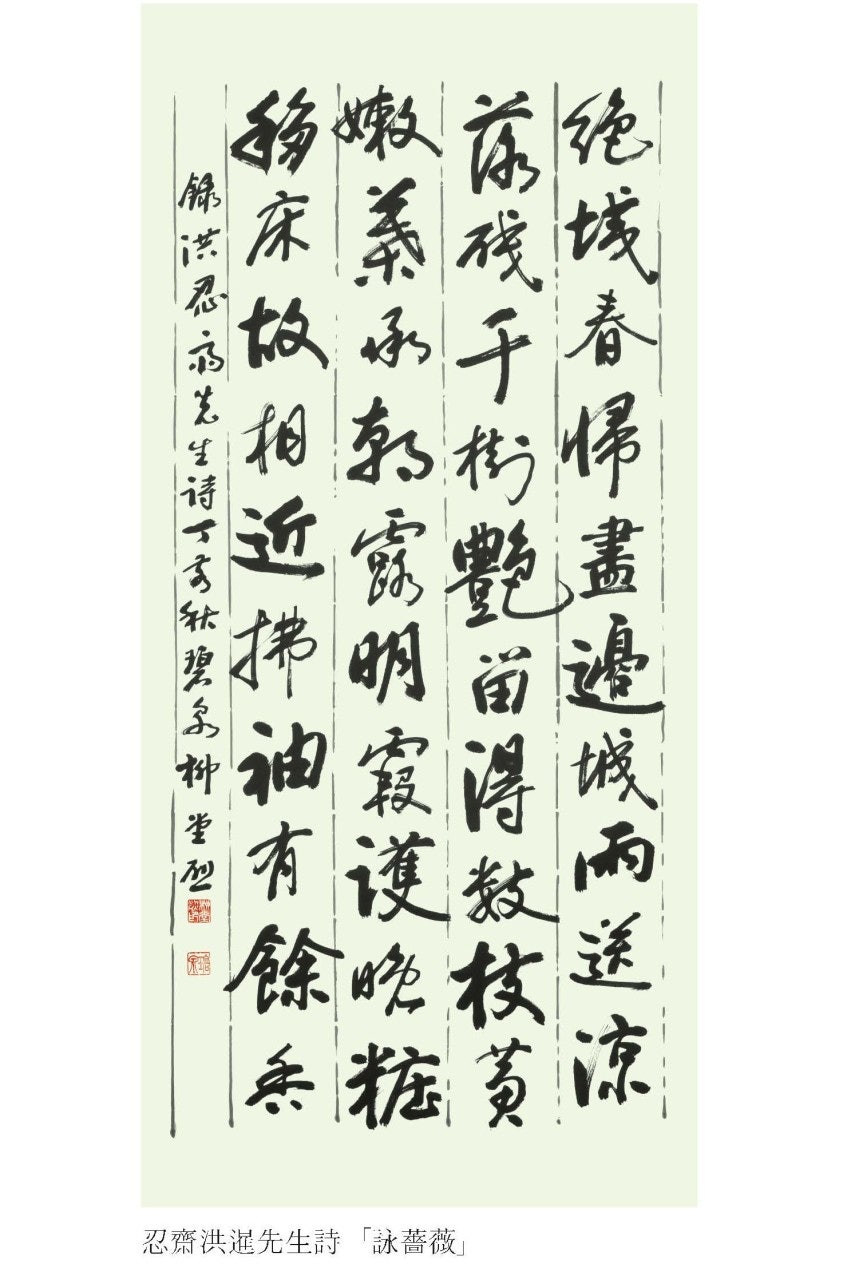 絶域春歸盡邊城雨送涼
落殘千樹艶留得數枝黃
嫩葉承朝露明霞護晚粧
移床故相近拂袖有餘香
錄洪忍齋先生詩丁亥秋碧泉柳堂烈
忍齋洪暹先生詩 「詠薔薇」